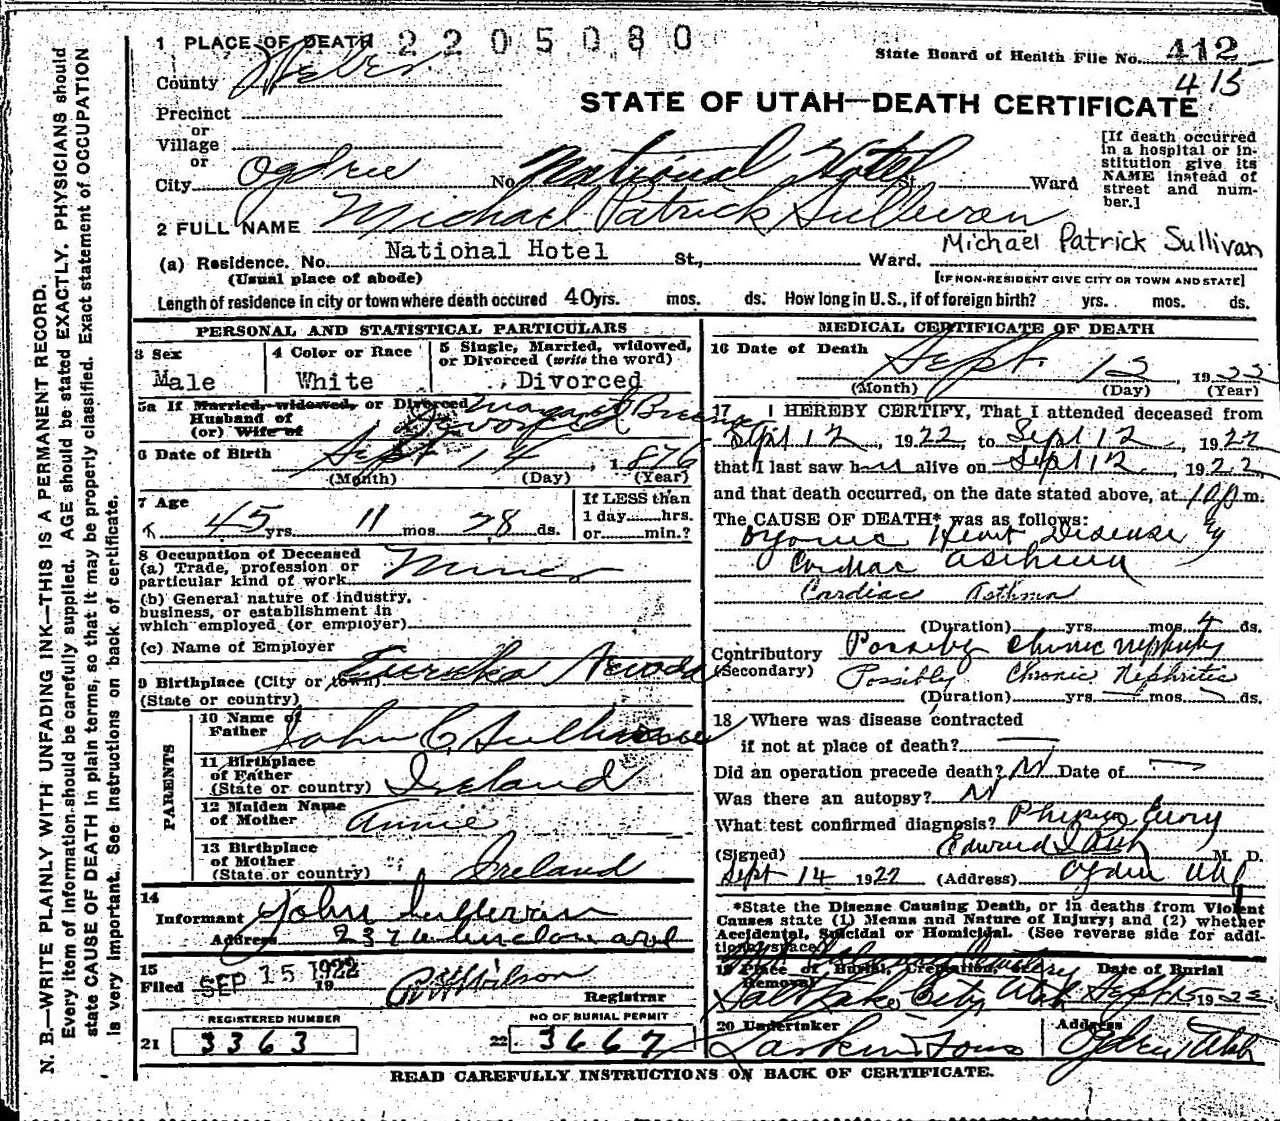 1 PLACE OF DEATH 2205080
State Board of Health File No. 412
415
County Weber
STATE OF UTAH—DEATH CERTIFICATE
Precinct
or
Village
or
City Ogden No. National Hotel St. Ward
[If death occurred in a hospital or institution give its NAME instead of street and number.]
2 FULL NAME Michael Patrick Sullivan
Michael Patrick Sullivan
(a) Residence. No. National Hotel St., Ward.
(Usual place of abode) [IF NON-RESIDENT GIVE CITY OR TOWN AND STATE]
Length of residence in city or town where death occured 40 yrs. mos. ds. How long in U.S., if of foreign birth? yrs. mos. ds.
PERSONAL AND STATISTICAL PARTICULARS
3 Sex
Male
4 Color or Race
White
5 Single, Married, widowed, or Divorced (write the word)
Divorced
5a If Married, widowed, or Divorced
Husband of
(or) Wife of
Margaret
Divorced
6 Date of Birth Sept 14, 1876
(Month) (Day) (Year)
7 Age
45 yrs. 11 mos. 28 ds.
If LESS than
1 day......hrs.
or......min.?
8 Occupation of Deceased
(a) Trade, profession or
particular kind of work Miner
(b) General nature of industry,
business, or establishment in
which employed (or employer)
(c) Name of Employer
9 Birthplace (City or town) Eureka Nevada
(State or country)
PARENTS
10 Name of
Father John C. Sullivan
11 Birthplace
of Father
(State or country) Ireland
12 Maiden Name
of Mother Annie
13 Birthplace
of Mother
(State or country) Ireland
14
Informant John Sullivan
Address
15
Filed SEP 15 1922 19 Wilson
Registrar
REGISTERED NUMBER
21 3363
NO OF BURIAL PERMIT
22 3667
MEDICAL CERTIFICATE OF DEATH
16 Date of Death Sept. 12, 1922
(Month) (Day) (Year)
17 I HEREBY CERTIFY, That I attended deceased from
Sept 12, 1922 to Sept 12, 1922
that I last saw him alive on Sept 12, 1922
and that death occurred, on the date stated above, at 10 p m.
The CAUSE OF DEATH* was as follows:
Organic Heart Disease
Cardiac asthma
Cardiac Asthma
(Duration) yrs. mos. 4 ds.
Contributory Possibly Chronic nephritis
(Secondary) Possibly Chronic Nephritis
(Duration) yrs. mos. ds.
18 Where was disease contracted
if not at place of death?
Did an operation precede death? N Date of
Was there an autopsy? N
What test confirmed diagnosis?
(Signed) Edward I. M. D.
Sept 14 1922 (Address) Ogden Utah
*State the Disease Causing Death, or in deaths from Violent
Causes state (1) Means and Nature of Injury; and (2) whether
Accidental, Suicidal or Homicidal. (See reverse side for additional space.)
19 Place of Burial, Cremation, or Removal Date of Burial
Mt. Calvary Cemetery
Salt Lake City, Utah Sept 15 1922
20 Undertaker Address
Larkin & Sons Ogden Utah
READ CAREFULLY INSTRUCTIONS ON BACK OF CERTIFICATE.
N. B.—WRITE PLAINLY WITH UNFADING INK—THIS IS A PERMANENT RECORD.
Every item of information should be carefully supplied. AGE should be stated EXACTLY. PHYSICIANS should
state CAUSE OF DEATH in plain terms, so that it may be properly classified. Exact statement of OCCUPATION
is very important. See Instructions on back of certificate.